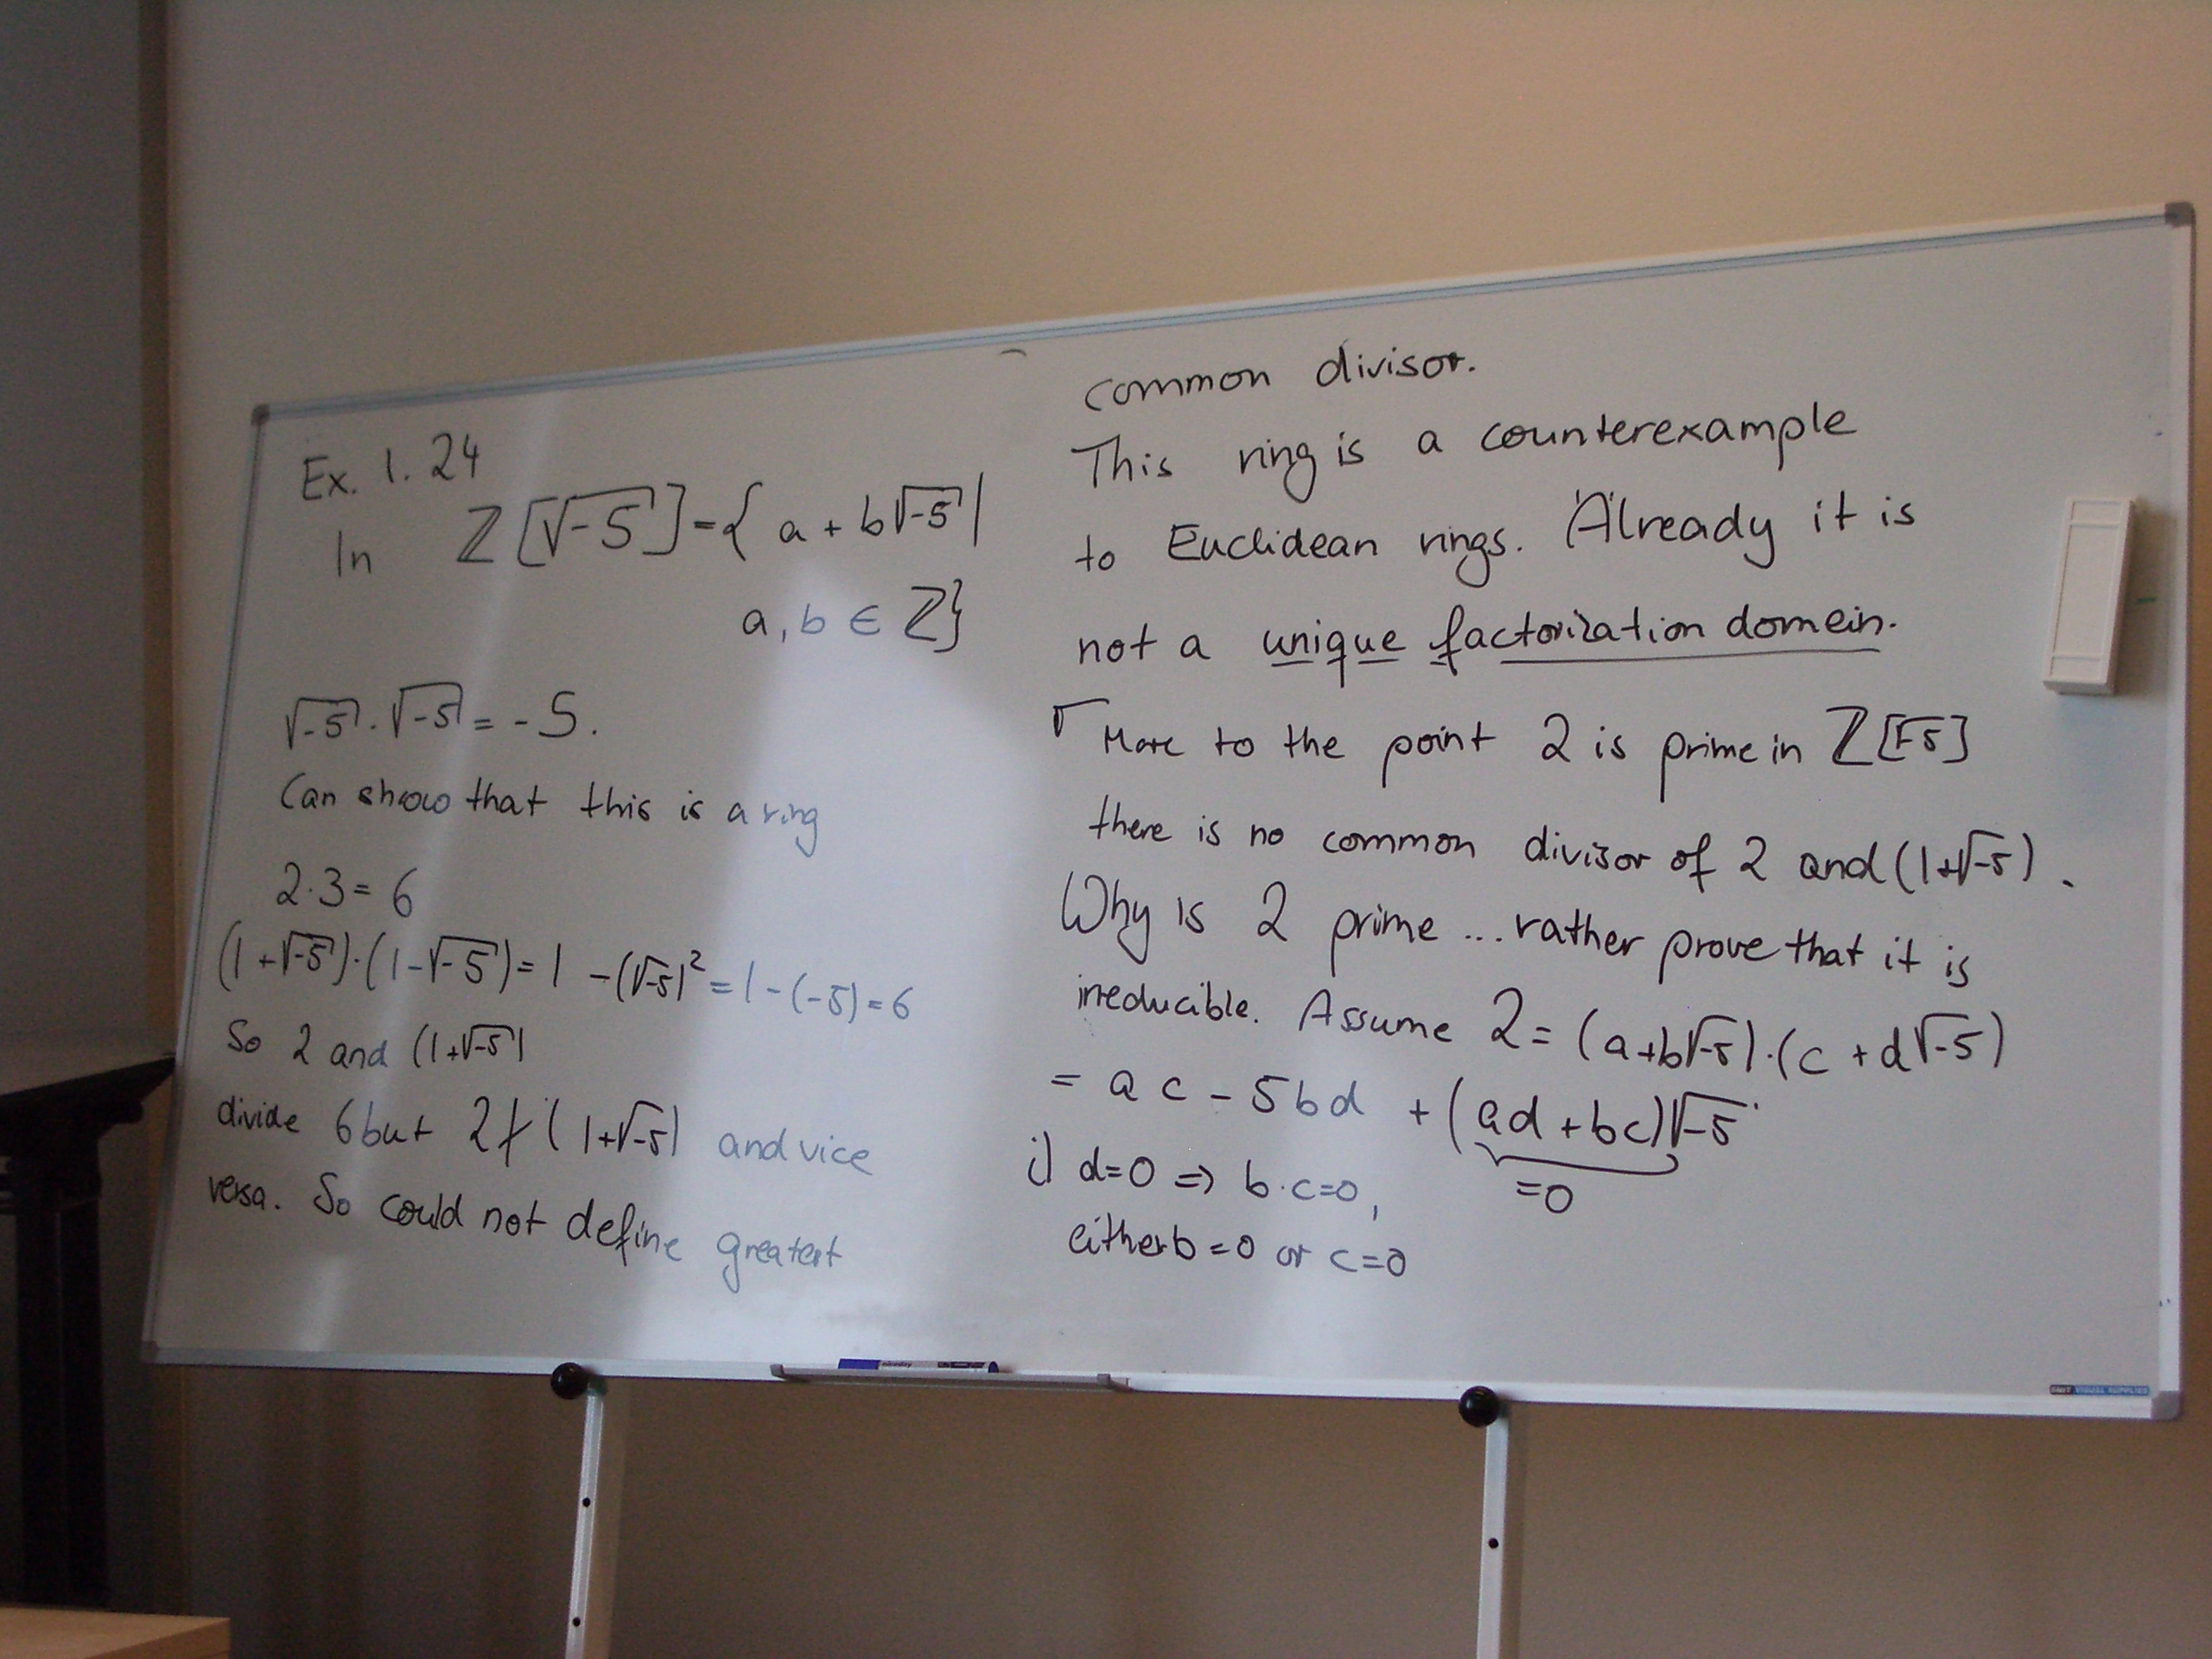 Ex. 1.24
In ℤ[√-5] = { a + b√-5 |
a, b ∈ ℤ}
√-5 · √-5 = -5.
Can show that this is a ring
2·3 = 6
(1+√-5)·(1-√-5) = 1 - (√-5)² = 1-(-5) = 6
So 2 and (1+√-5)
divide 6 but 2∤(1+√-5) and vice
versa. So could not define greatest
common divisor.
This ring is a counterexample
to Euclidean rings. Already it is
not a unique factorization domein.
More to the point 2 is prime in ℤ[√-5]
there is no common divisor of 2 and (1+√-5).
Why is 2 prime ... rather prove that it is
irreducible. Assume 2 = (a+b√-5)·(c+d√-5)
= ac - 5bd + (ad+bc)√-5.
=0
i) d=0 ⇒ b·c=0,
either b=0 or c=0